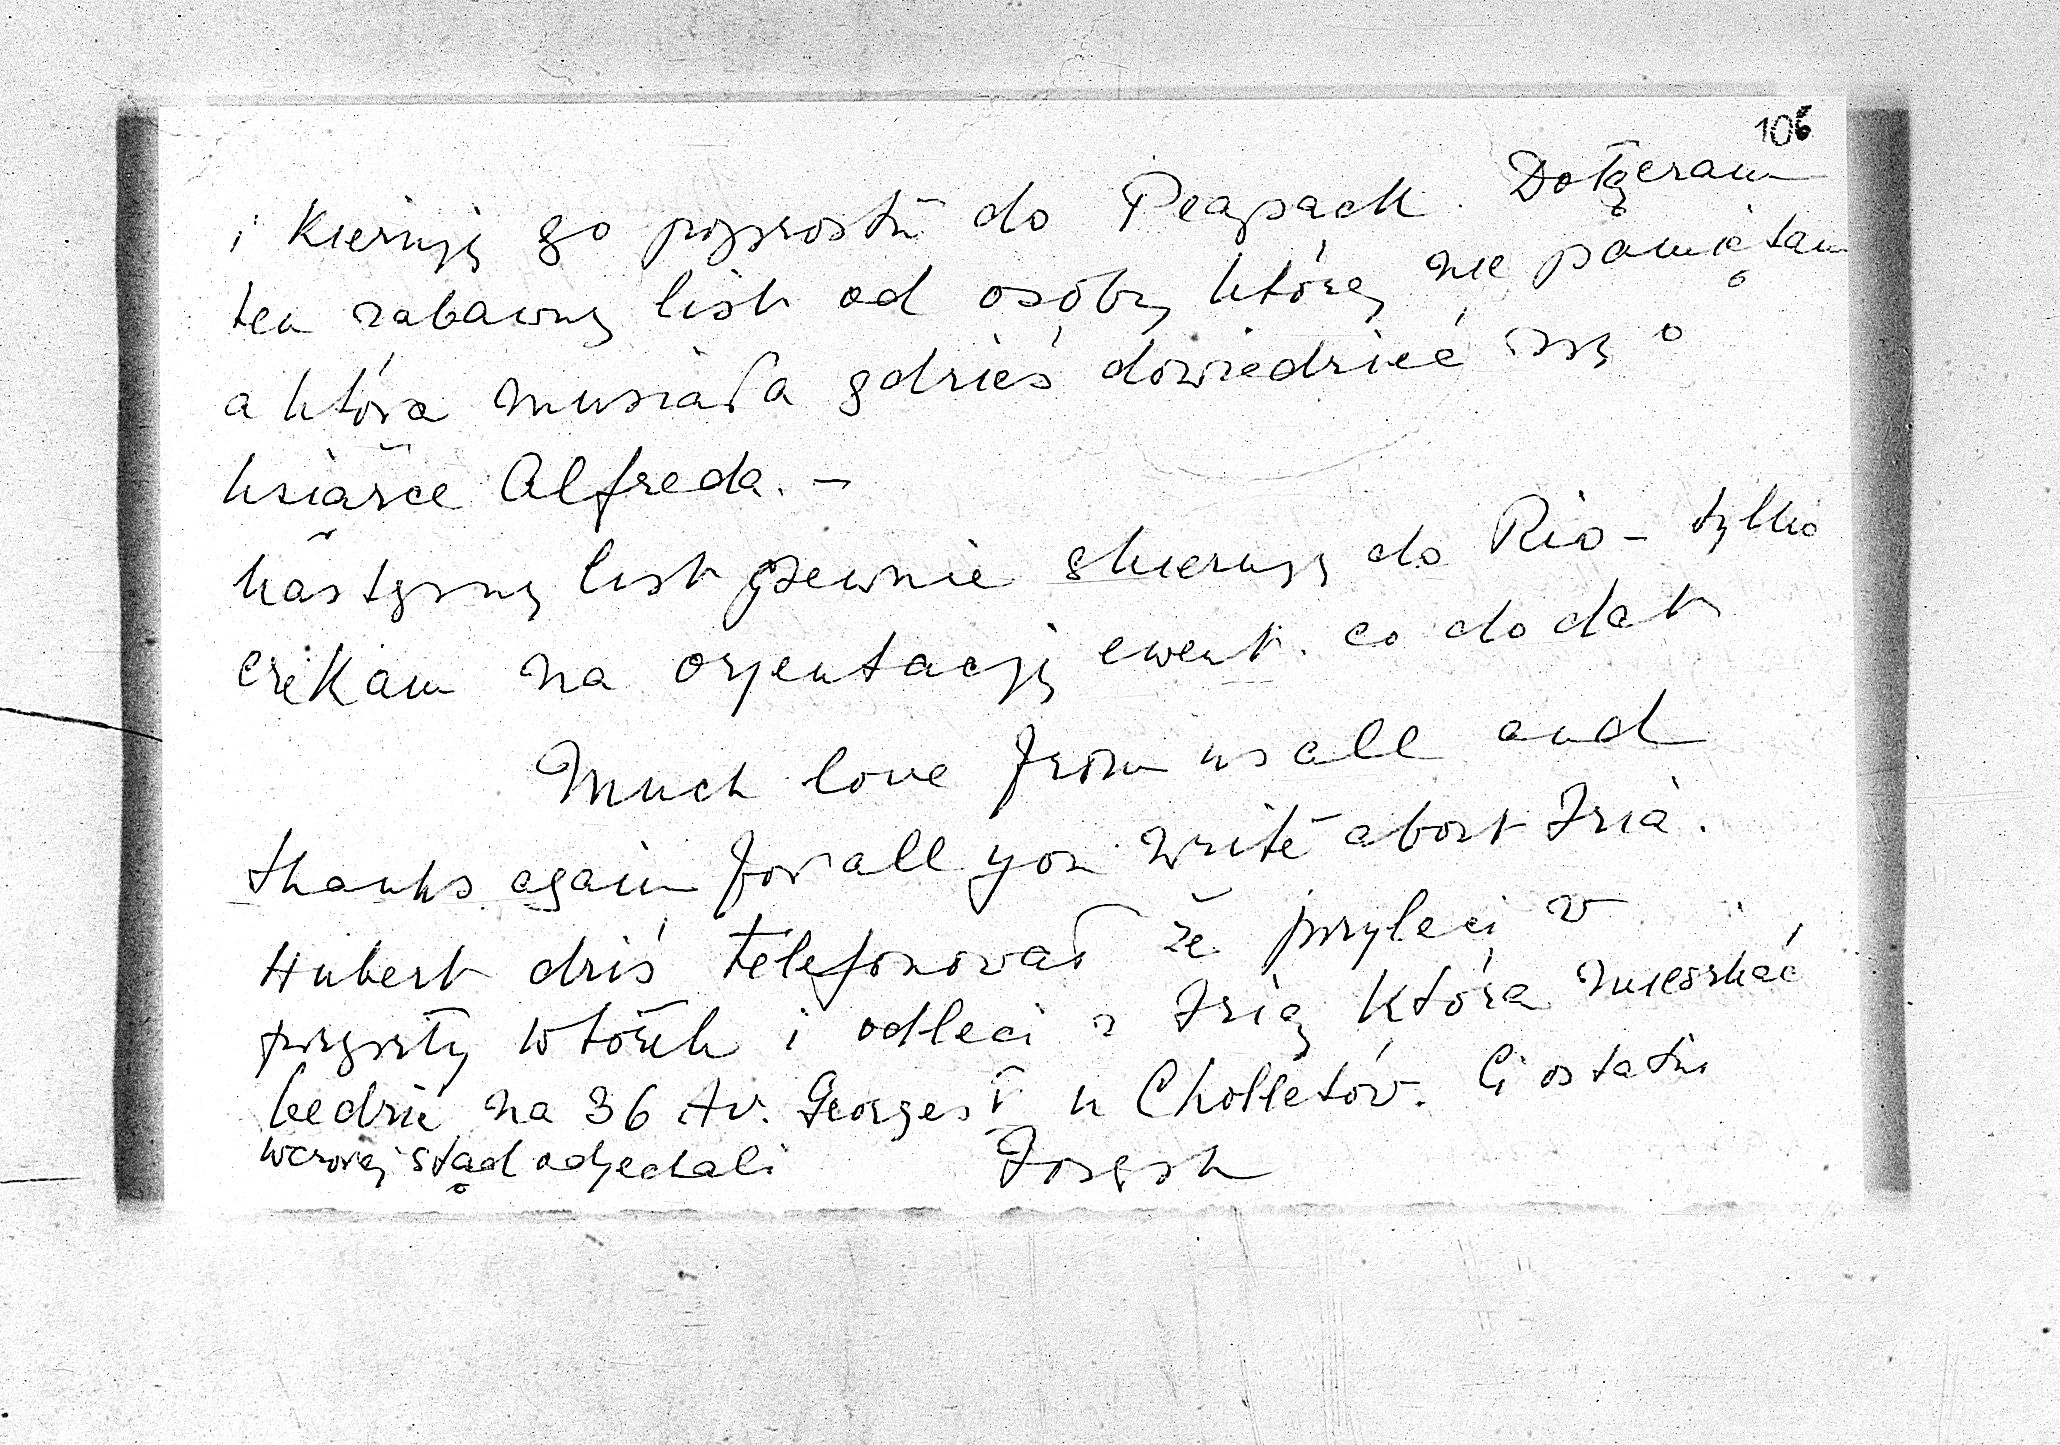 106
i Kieruję go poprostu do Peapack. Dołączam
ten zabawny list od osoby której nie pamiętam
a która musiała gdzieś dowiedzieć się o
książce Alfreda. –
Następny list pewnie skieruję do Rio – tylko
czekam na orjentację ewent. co do dat
Much love from us all and
thanks again for all you write about Iria.
Hubert dziś telefonował że przyleci w
przyszły wtorek i odleci z Irią która mieszkać
będzie na 36 Av. Georges V u Cholletów. Ci ostatni
wczoraj stąd odjechali Joseph